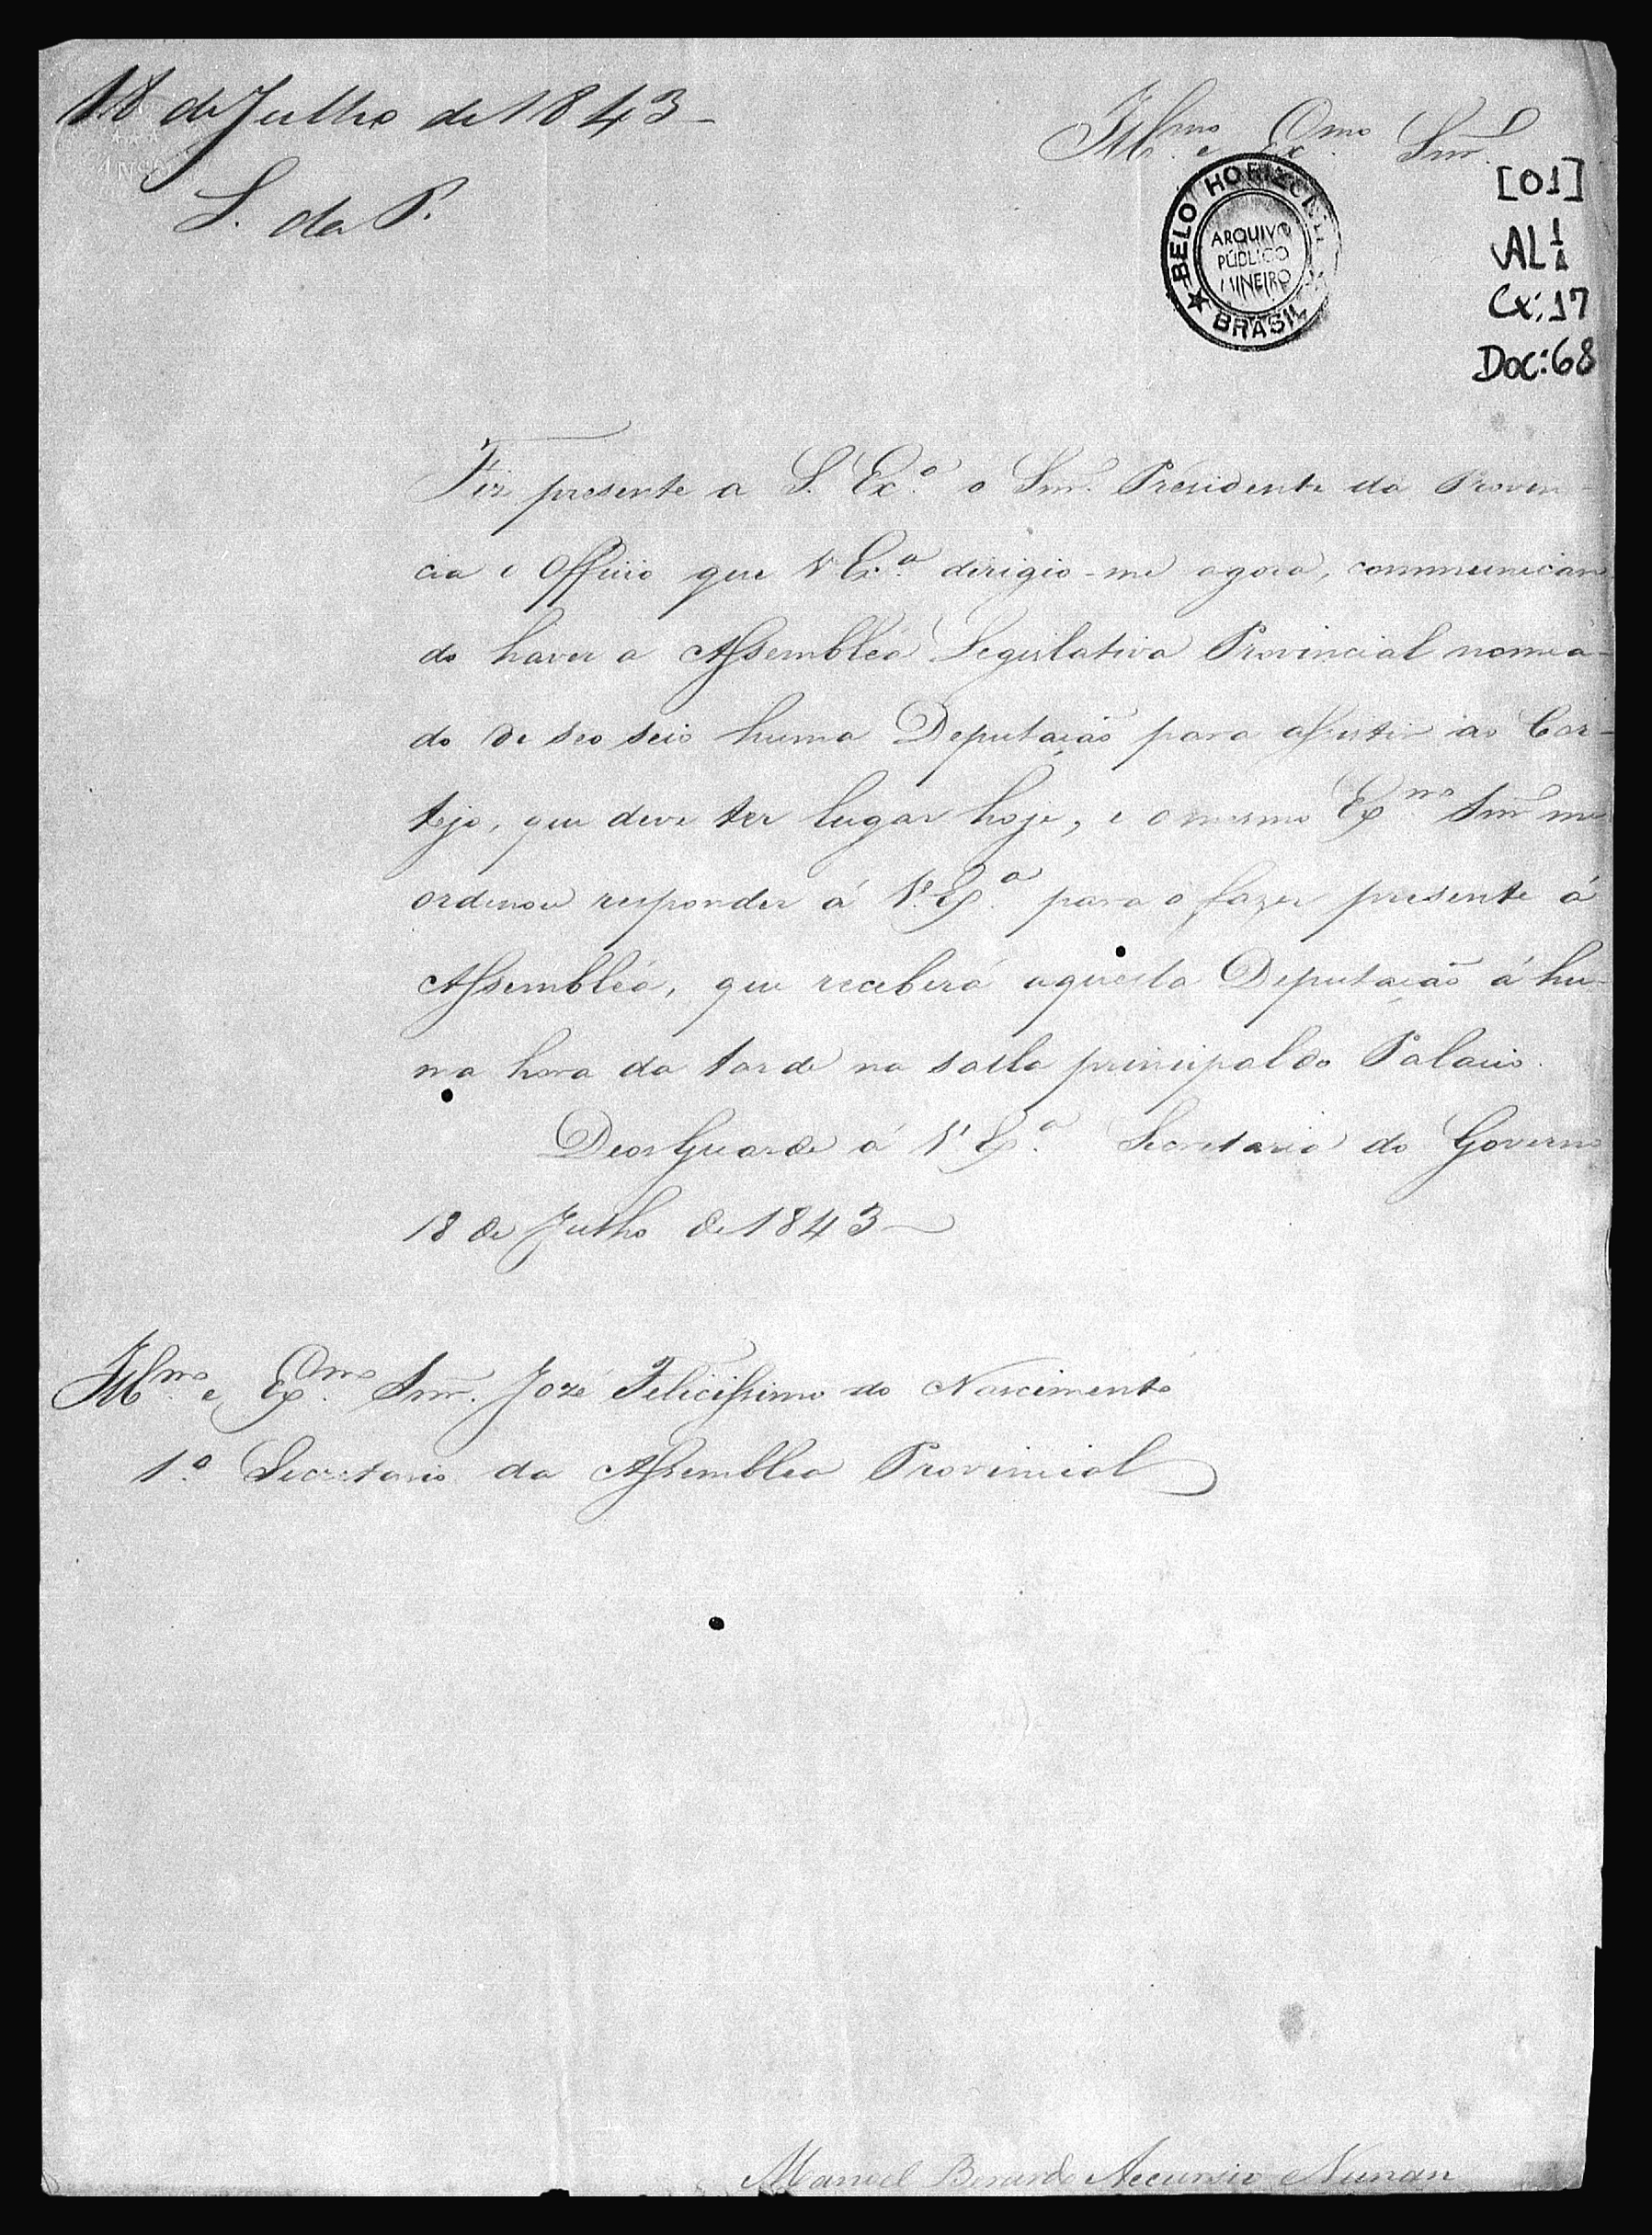 18 de Julho de 1843
S. da P.
Illmo. e Exmo. Snr.
BELO HORIZONTE
ARQUIVO
PÚBLICO
MINEIRO
BRASIL
[01]
AL 1/1
Cx: 17
Doc: 68
Fiz presente a S. Exa. o Snr. Presidente da Provin-
cia o Officio que V. Exa. dirigio-me agora, communican
do haver a Assembléa Legislativa Provincial nomea-
do de seo seio huma Deputação para assistir ao Cor-
tejo, que deve ter lugar hoje, e o mesmo Exmo. Snr. me
ordenou responder á V. Exa. para o fazer presente á
Assembléa, que receberá aquella Deputação á hu-
ma hora da tarde na salla principal do Palacio.
Deos Guarde á V. Exa. Secretaria do Governo
18 de Julho de 1843
Illmo. e Exmo. Snr. Jozé Felicissimo do Nascimento
1.º Secretario da Assemblea Provincial
Manoel Bernardo Accursio Nunan